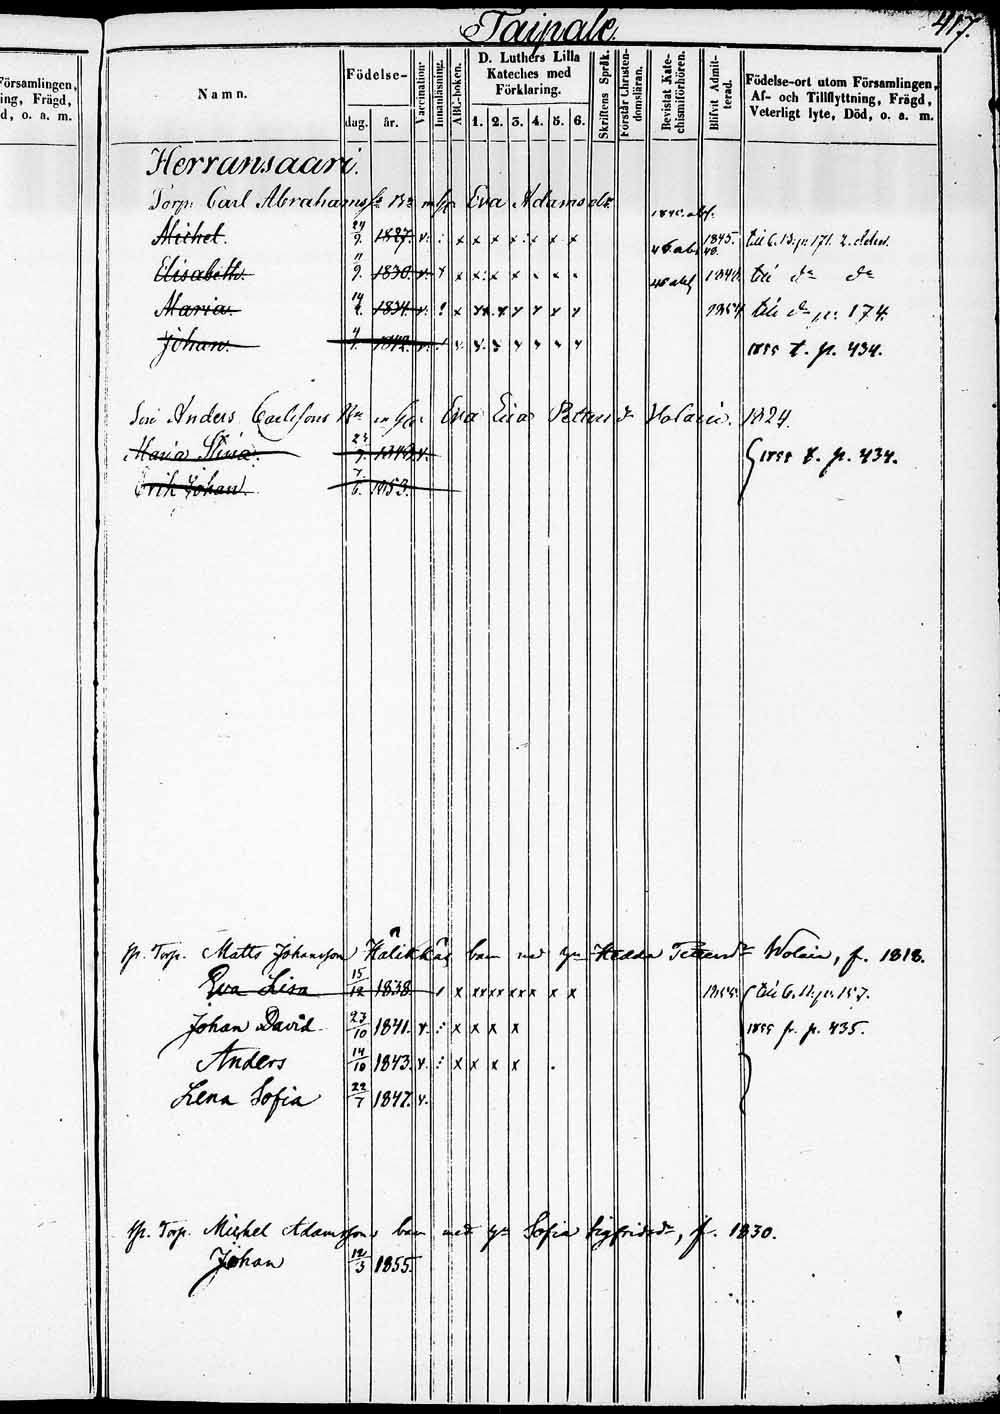 Taipale. 417.
Församlingen,
ing, Frägd,
d, o. a. m.
Namn.
Födelse-
dag. år.
Vaccination.
Innanläsning.
ABC-boken.
D. Luthers Lilla
Kateches med
Förklaring.
1. 2. 3. 4. 5. 6.
Skriftens Språk.
Förstår Christen-
domsläran.
Bevistat Kate-
chismiförhören.
Blifvit Admit-
terad.
Födelse-ort utom Församlingen,
Af- och Tillflyttning, Frägd,
Veterligt lyte, Död, o. a. m.
Herransaari.
Torp: Carl Abrahamss: Eva Adamsdr.
Michel. 24/9. 1827. v. : x x x x x x x 1845. till p. 171.
Elisabeth. 11/9. 1830. v. x x x x x x x 1848. till do do
Maria. 14/2. 1834. v. x x x x x x x 1854 till do p. 174.
Johan. 1842. v. 1855 t. p. 434.
Anders Carlssons Eva Lisa Petters dr Wolain. 1824.
Maria Stina. 23/9. 1849. v. 1855 t. p. 434.
Erik Johan. 7/6. 1853.
Torp. Matts Johansson Hälikkäs barn med Hedda Pettersdr Wolain, f. 1818.
Eva Lisa 15/12 1838 x x x x x x x x x 1855. till p. 157.
Johan David 23/10 1841. v. : x x x x 1855 f. p. 435.
Anders 14/10 1843. v. : x x x x
Lena Sofia 22/7 1847. v.
Torp. Michel Adamssons barn med Sofia Sigfridsdr, f. 1830.
Johan 12/3 1855.